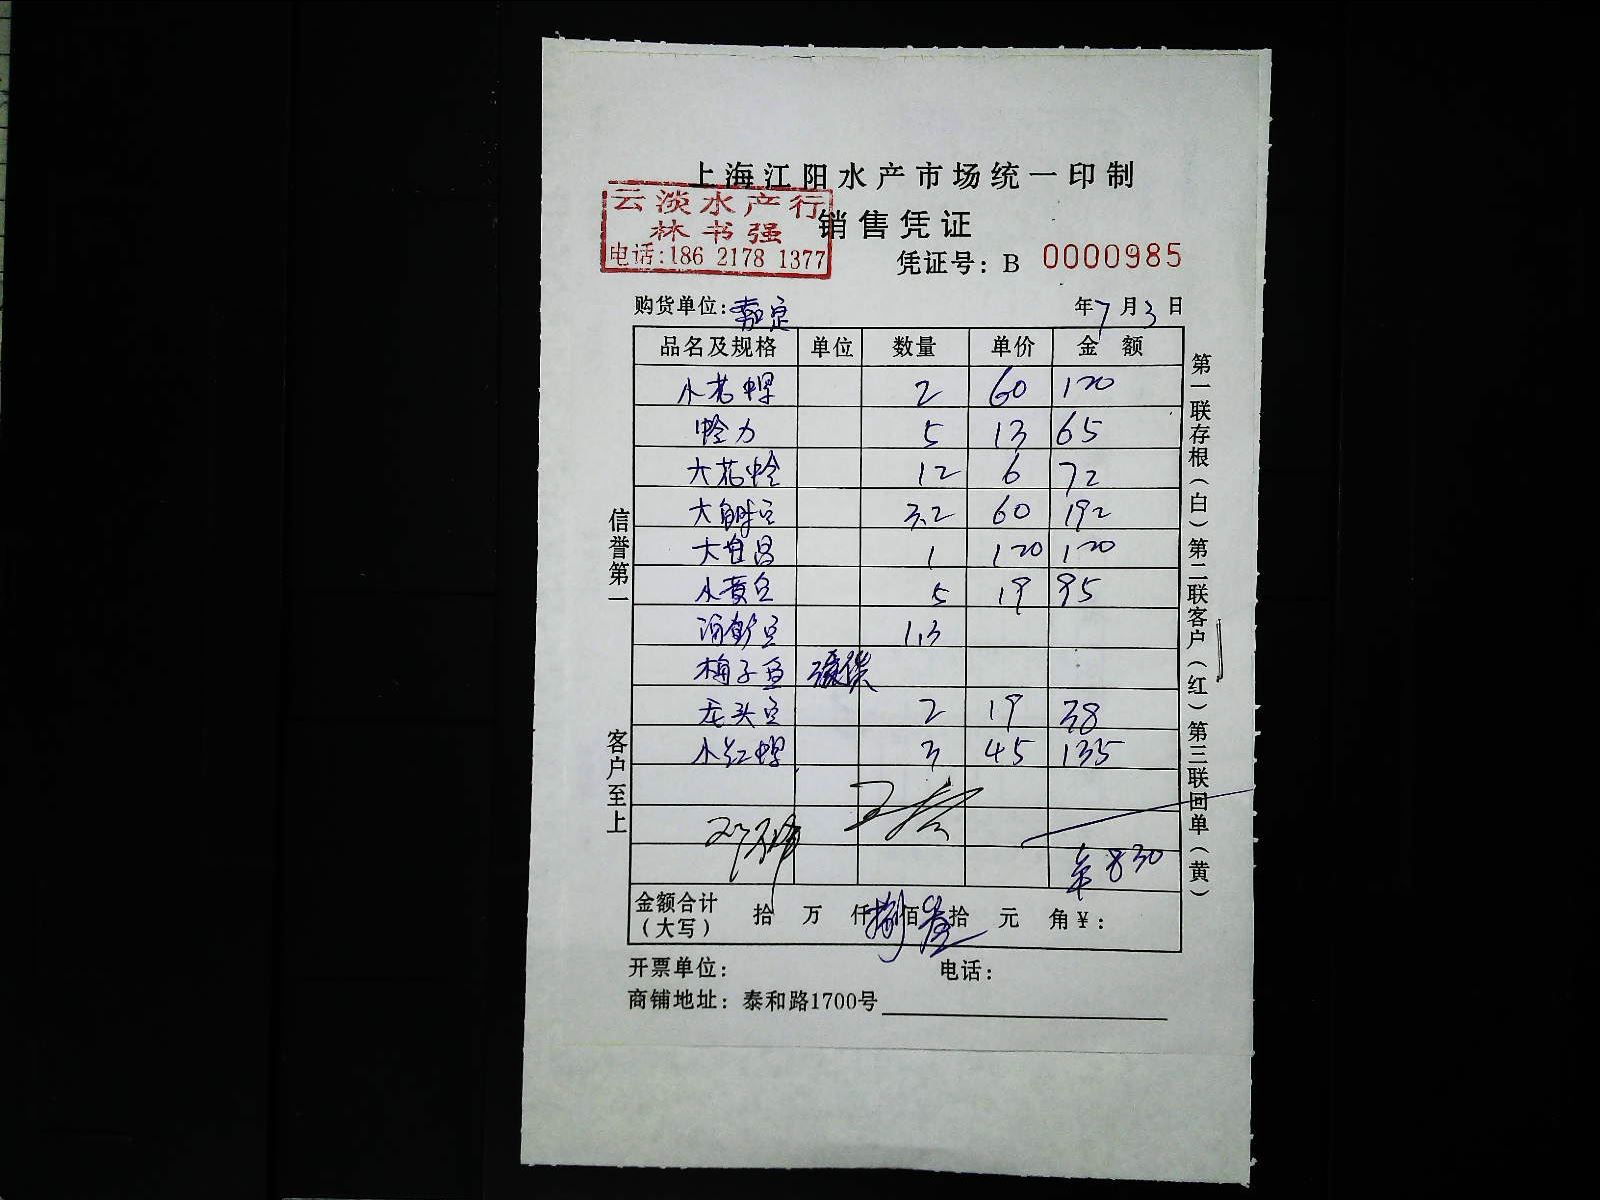 上海江阳水产市场统一印制
云淡水产行
林书强
电话:186 2178 1377
销售凭证
凭证号: B 0000985
购货单位: 嘉定 年7月3日
品名及规格 单位 数量 单价 金额
2 60 120
5 13 65
大花蛤 12 6 72
3.2 60 192
1 120 120
小黄鱼 5 19 95
1.3
梅子鱼
龙头鱼 2 19 38
3 45 135
¥830
金额合计 拾 万 仟 捌佰 叁拾 元 角 ¥:
(大写)
开票单位: 电话:
商铺地址: 泰和路1700号
信誉第一
客户至上
第一联存根(白)第二联客户(红)第三联回单(黄)